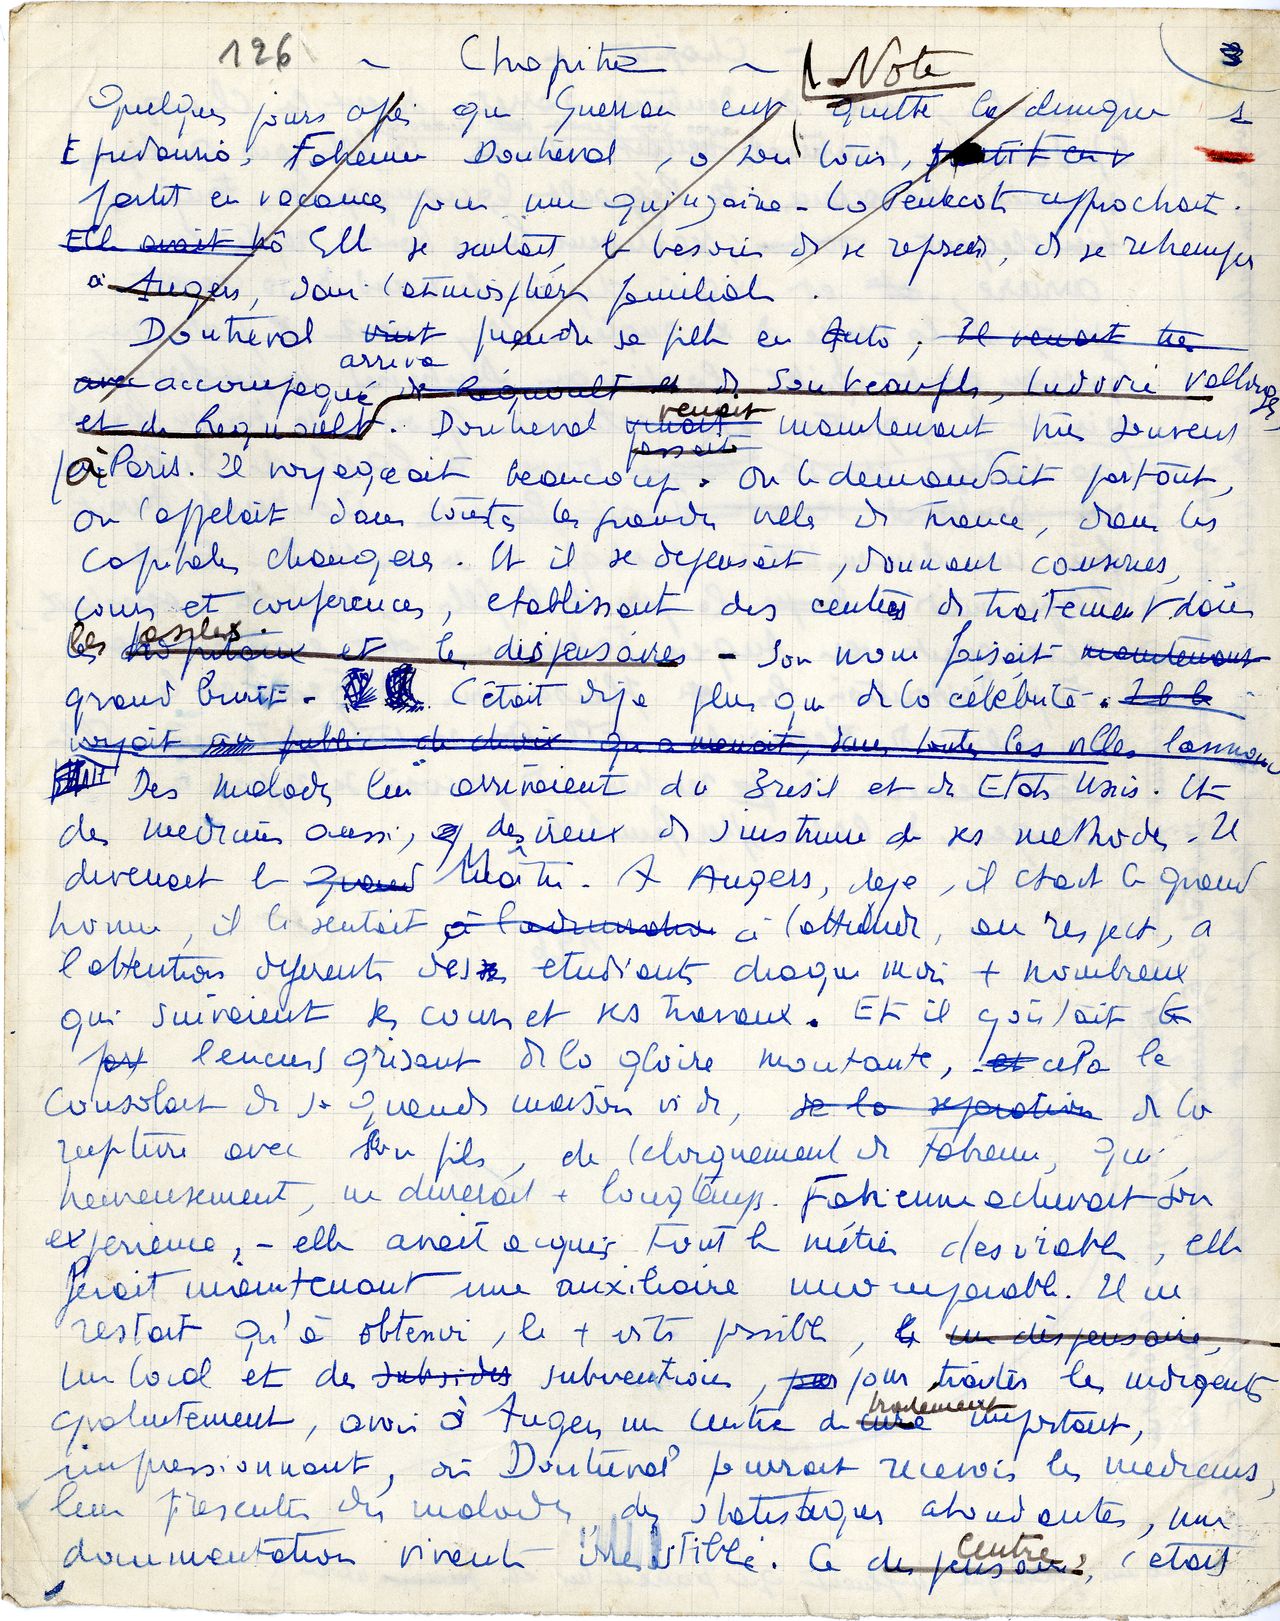 126 ~ Chapitre ~ Note 3
Quelques jours après que Guerran eut quitté la clinique 1
Epidauria, Fabienne Doutreval, à son tour,
partit en vacances pour une quinzaine - La Pentecote approchait.
Elle avait Elle se sentait le besoin de se reposer, de se retremper
à Angers, dans l'atmosphère familiale.
Doutreval vint prendre sa fille en Auto; Il venait
arriva
avec accompagné de Regnoult et de son beau fils, Ludovic Vallorge,
et de Regnoult. Doutreval venait maintenant très souvent
passait
à Paris. Il voyageait beaucoup. On le demandait partout,
on l'appelait dans toutes les grandes villes de France, dans les
capitales étrangères. Et il se dépensait, donnant causeries,
cours et conférences, établissant des centres de traitement dans
les asiles.
les hopitaux et les dispensaires - Son nom faisait maintenant
grand bruit - C'était déjà plus que de la célébrité.
voyait un public de choix dans toutes les villes
Des malades lui arrivaient du Brésil et des Etats Unis. Et
des medecins aussi, désireux de s'instruire de ses methodes - Il
devenait le Grand Maître. A Angers, déjà, il était le grand
homme, il le sentait à l'admiration à l'attitude, au respect, a
l'attention déférente des étudiants chaque mois + nombreux
qui suivaient ses cours et ses travaux. Et il goûtait
l'encens grisant de la gloire montante, et cela le
consolait de sa grande maison vide, de la séparation de la
rupture avec son fils, de l'éloignement de Fabienne, qui,
heureusement, ne durerait + longtemps. Fabienne achevait son
expérience, - elle avait acquis tout le métier désirable, elle
ferait maintenant une auxiliaire incomparable. Il ne
restait qu'à obtenir, le + vite possible, un dispensaire,
un local et des subsides subventions, pour traiter les indigents
gratuitement, avoir à Angers un centre de cure traitement important,
impressionnant, où Doutreval pourrait recevoir les medecins,
leur présenter des malades des statistiques abondantes, une
documentation vivante irresistible. Ce dispensaire centre, c'était